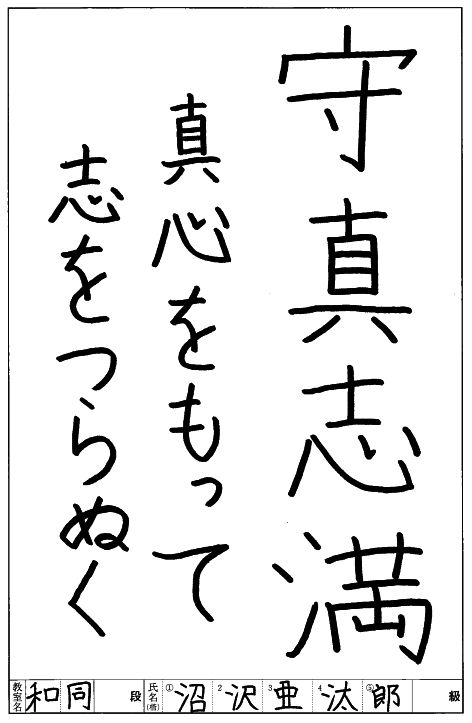 守真志満
真心をもって
志をつらぬく
教室名 和同 段 氏名(楷) ①沼 2沢 3亜 4汰 ⑤郎 級